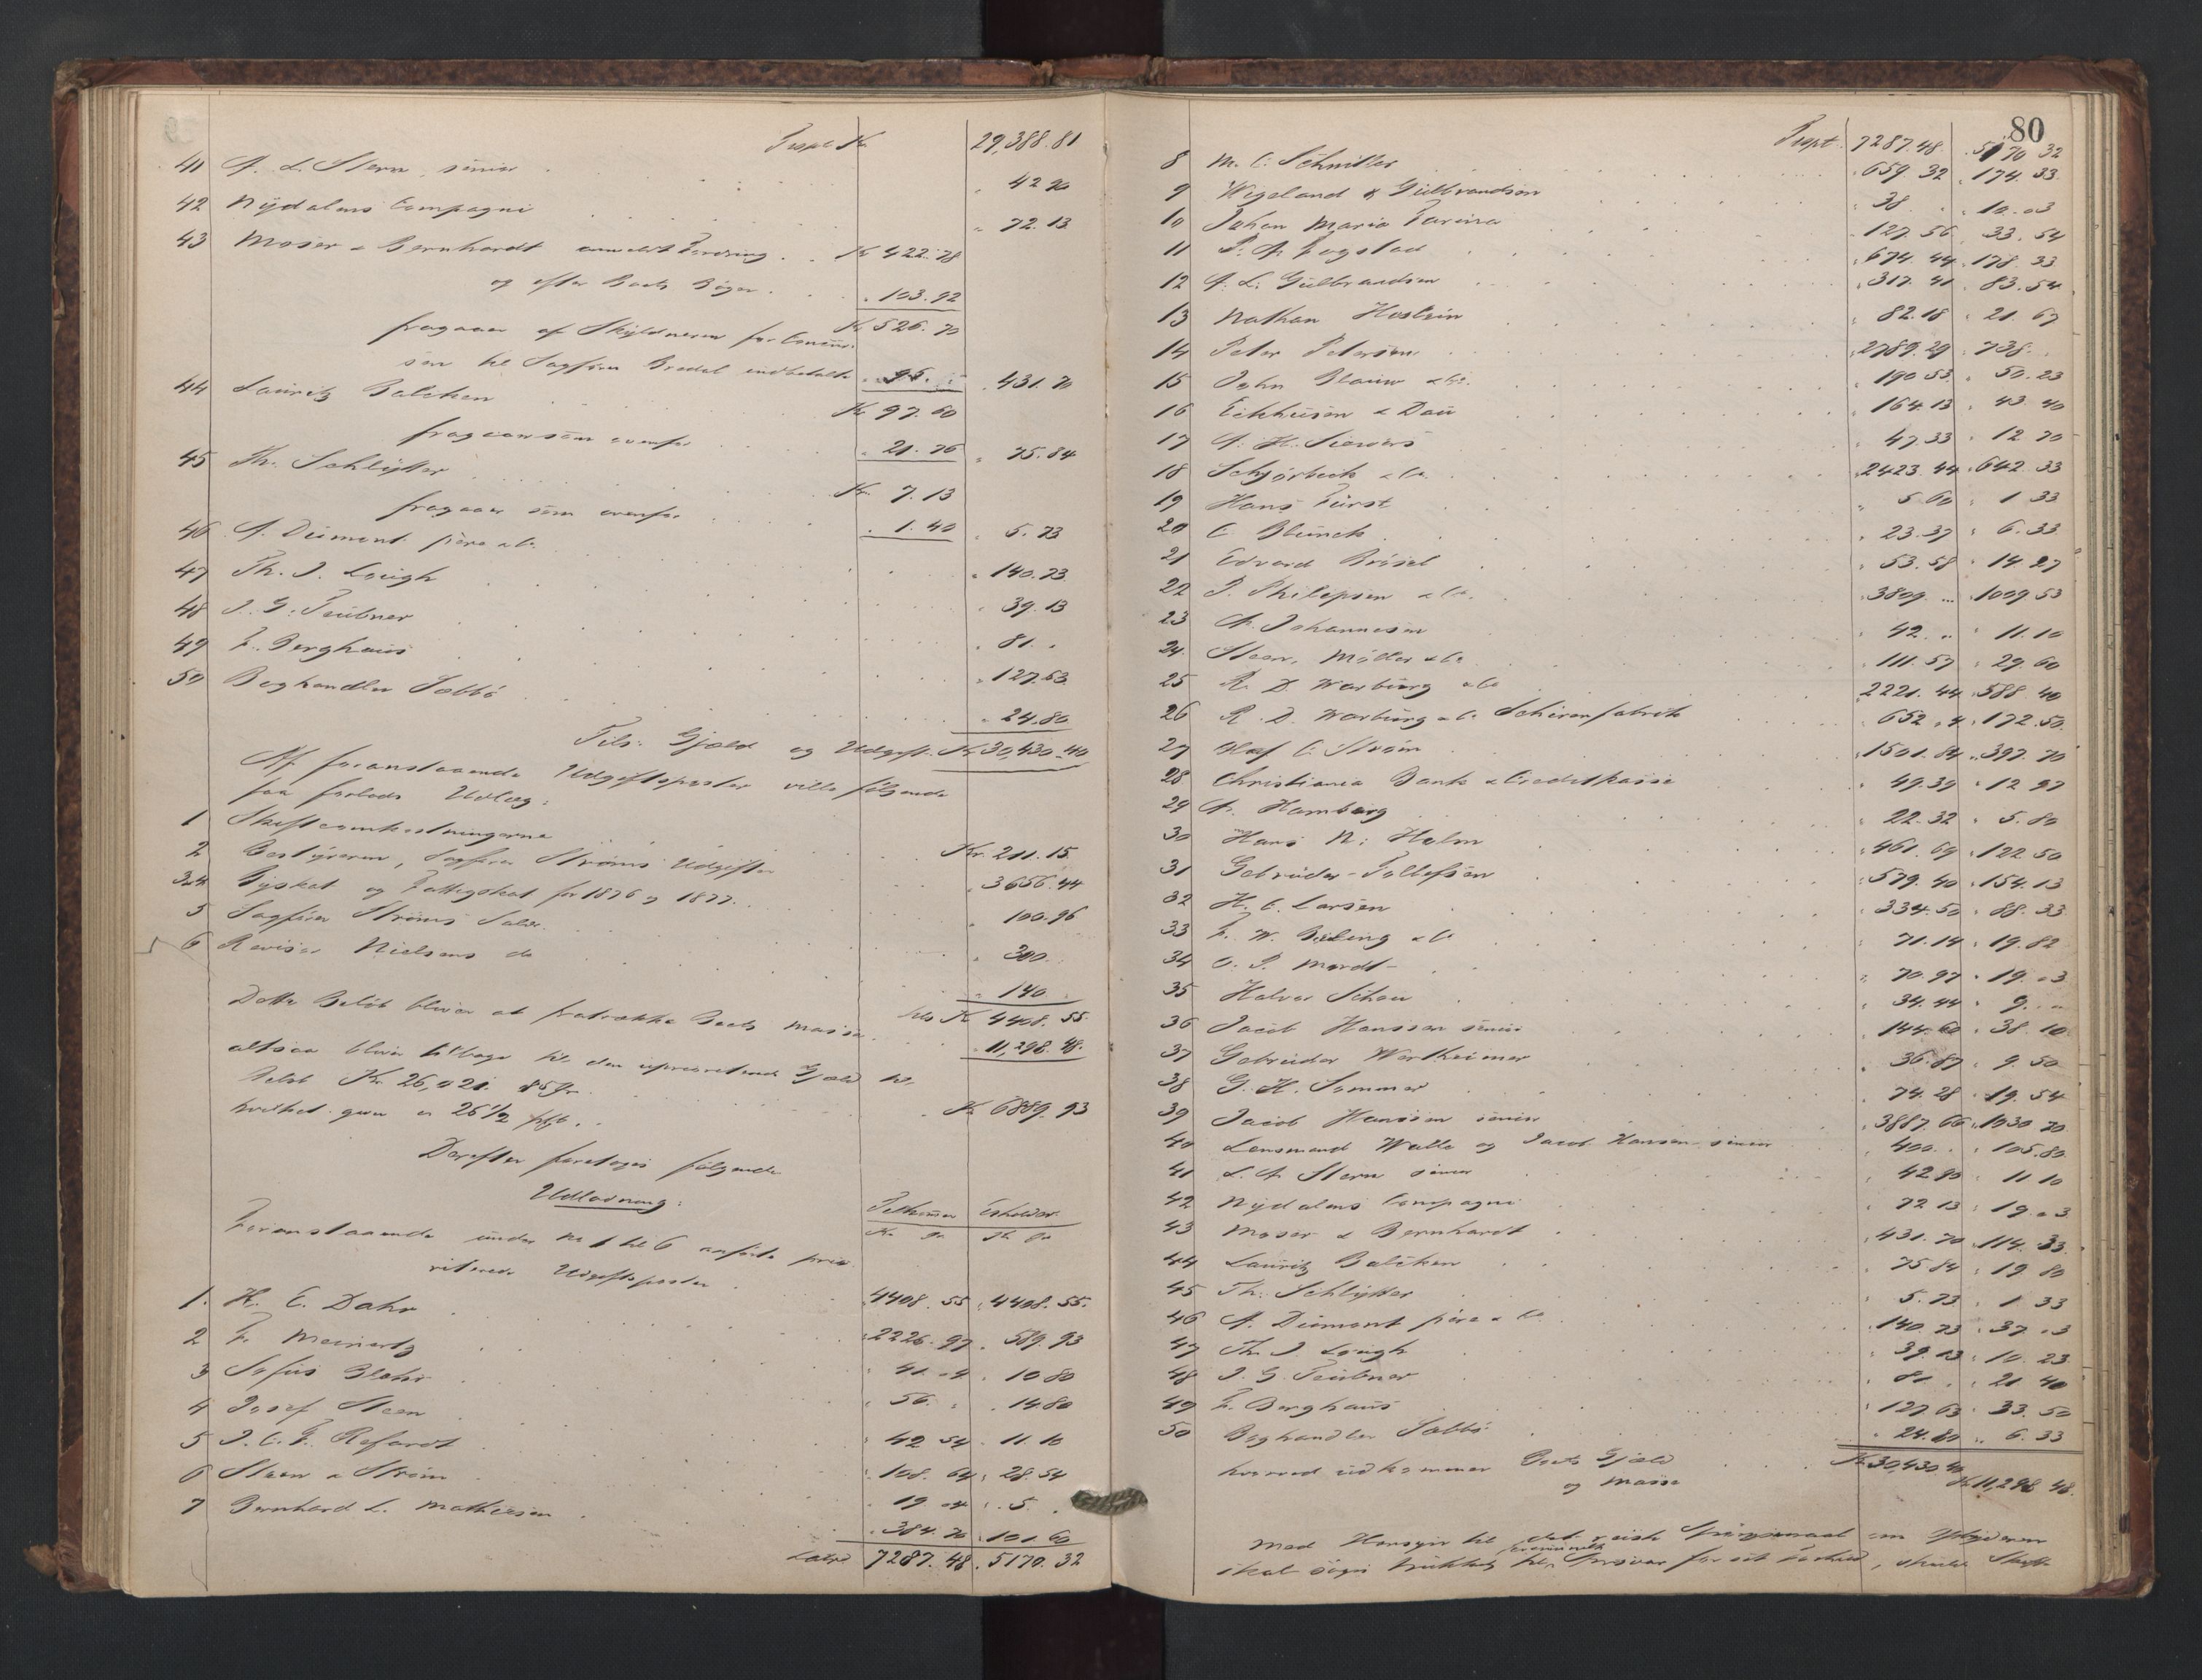 Trspt Kr. 29,388.81
41 A. L. Stern, senior . 42 90
42 Nydalens Compagni " 72.13
43 Moser & Bernhardt anmeldt Fordring . . Kr 422.78
og efter Boets Bøger . . 103.92
Kr 526.70
fragaaer af Skyldneren før Concur-
sen til Sagfører Bredal indbetalte 95. " 431.70
44 Lauritz Balchen Kr 97.60
fragaaer som ovenfor . 21.76 " 75.84
45 Th. Schlytter Kr. 7.13
fragaaer som ovenfor . 1.40 " 5.73
46 A. Dumont père & Co. " 140.73
47 Th. J. Lough " 39.13
48 J. G. Teubner " 81. "
49 F. Berghaus " 127.63
50 Boghandler Sæbbø " 24.80
Tils. Gjæld og Udgift Kr 30,430.40
Af foranstaaende Udgiftsposter ville følgende
faa forlods Udlæg:
1 Skifteomkostningerne Kr. 211.15
2 Bestyreren, Sagfører Strøms Udgifter " 3656.44
3&4 Byskat og Fattigskat for 1876 og 1877. " 100.96
5 Sagfører Strøms Salær " 300.
6 Revisor Nielsens do " 140.
tils Kr 4408.55
Dette Beløb bliver at fratrække Boets Masse . 11,298.48.
altsaa bliver tilbage til den uprioriterede Gjæld tils.
Beløb Kr. 26,021.85 Ør. Kr 6889.93
hvilket giver en 26 1/2 pCt. . .
Derefter foretoges følgende
Udlodning:
Tilkommer Erholder
Kr Ør Kr Ør
Foranstaaende under No 1 til 6 anførte prio-
riterede Udgiftsposter . 4408.55 . 4408.55.
1. H. C. Dahr . 2226.97 . 589.93
2 F. Meinertz " 41.04 . 10 80
3 Sofus Blehr " 56. " . 14 80
4 Josef Steen " 42 54 . 11.10
5 J. C. F. Refardt " 108.64 . 28.54
6 Steen & Strøm " 19.04 . 5. .
7 Bernhard L. Mathiesen . 384.70 . 101.60
Latus 7287.48 . 5170.32
80
Trspt. 7287.48 . 5170 32
8 M. C. Schmitler " 659.32 " 174.33
9 Wegeland & Gulbrandson " 38 . " 10.03
10 Johan Maria Farina " 127.56 " 33.54
11 P. A. Fogstad " 674.44 " 178.33
12 A. L. Gulbrandsen " 317.41 " 83.54
13 Nathan Hostein " 82.18 " 21.67
14 Peter Petersen " 2789.29 " 738. "
15 John Blauw & Co. " 190.53 " 50.23
16 Eikhusen & Dau " 164.13 " 43.40
17 A. H. Sievers " 47.33 " 12 70
18 Schjørbeck & Co. " 2423.44 " 642.33
19 Hans Fürst " 5.60 " 1 33
20 C. Blunck " 23.37 " 6.33
21 Edvard Brösel " 53.58 " 14 27
22 P. Philipsen & Co. " 3809. .. " 1009 53
23 A. Johannesen " 42. " " 11.10
24. Steen, Møller & Co " 111.57 " 29.60
25 R. D. Warburg & Co " 2221.44 " 588.40
26 R. D. Warburg & Co Schirmfabrik " 652.04 " 172.50
27 Olaf C. Strøm " 1501.84 " 397.70
28 Christiania Bank & Creditkasse " 49.39 " 12 97
29 A. Hamborg " 22.32 " 5.80
30 Hans N. Holm " 461.69 " 122 50
31 Gebruder Tollefsen " 579.40 " 154.13
32 H. C. Larsen " 334.50 " 88.33
33 F. W. Büsing & Co " 71.14 " 19.82
34 O. P. Mordt " 70.97 " 19.03
35 Halvor Schou " 34.44 " 9. "
36 Jacob Hanssen senior " 144.60 " 38.10
37 Gebruder Wertheimer " 36.87 " 9.50
38 G. H. Sommer " 74.28 " 19.54
39 Jacob Hanssen senior " 3887.66 " 1030 70
40 Lensmand Walle og Jacob Hansen senior " 400. " " 105.80
41 L. A. Stern senior " 42 90 " 11 10
42 Nydalens Compagni " 72 13 " 19.03
43 Moser & Bernhardt " 431.70 " 114.33
44 Lauritz Balchen " 75 84 " 19 80
45 Th. Schlytter " 5.73 " 1 33
46 A. Dumont père & Co " 140.73 " 37.03
47 Th. J. Lough " 39.13 " 10.23
48 J. G. Teubner " 81 . " 21 40
49 F. Berghaus " 127.63 " 33.50
50 Boghandler Sæbbø " 24.80 " 6.33
hvorved udkommer Boets Gjæld Kr 30,430 40
og Masse Kr 11,298 48.
Med Hensyn til det reiste Spørgsmaal om
skal trukket for , skulde Skifte-